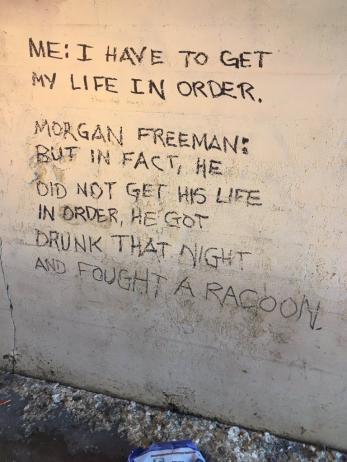 ME: I HAVE TO GET
MY LIFE IN ORDER.
MORGAN FREEMAN:
BUT IN FACT, HE
DID NOT GET HIS LIFE
IN ORDER, HE GOT
DRUNK THAT NIGHT
AND FOUGHT A RACOON